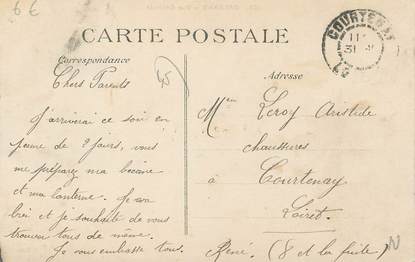 6 €
CARTE POSTALE
Correspondance
Adresse
COURTENAY
45
Chers Parents
J'arriverai ce soir en
perme de 2 jours, vous
me préparez ma bécane
et ma lanterne. Je va
bei et je souhaite de vous
trouver tous de même.
Je vous embrasse tous.
René. (8 et la fuite)
Leroy Aristide
chaussures
à Courtenay
Loiret.
N